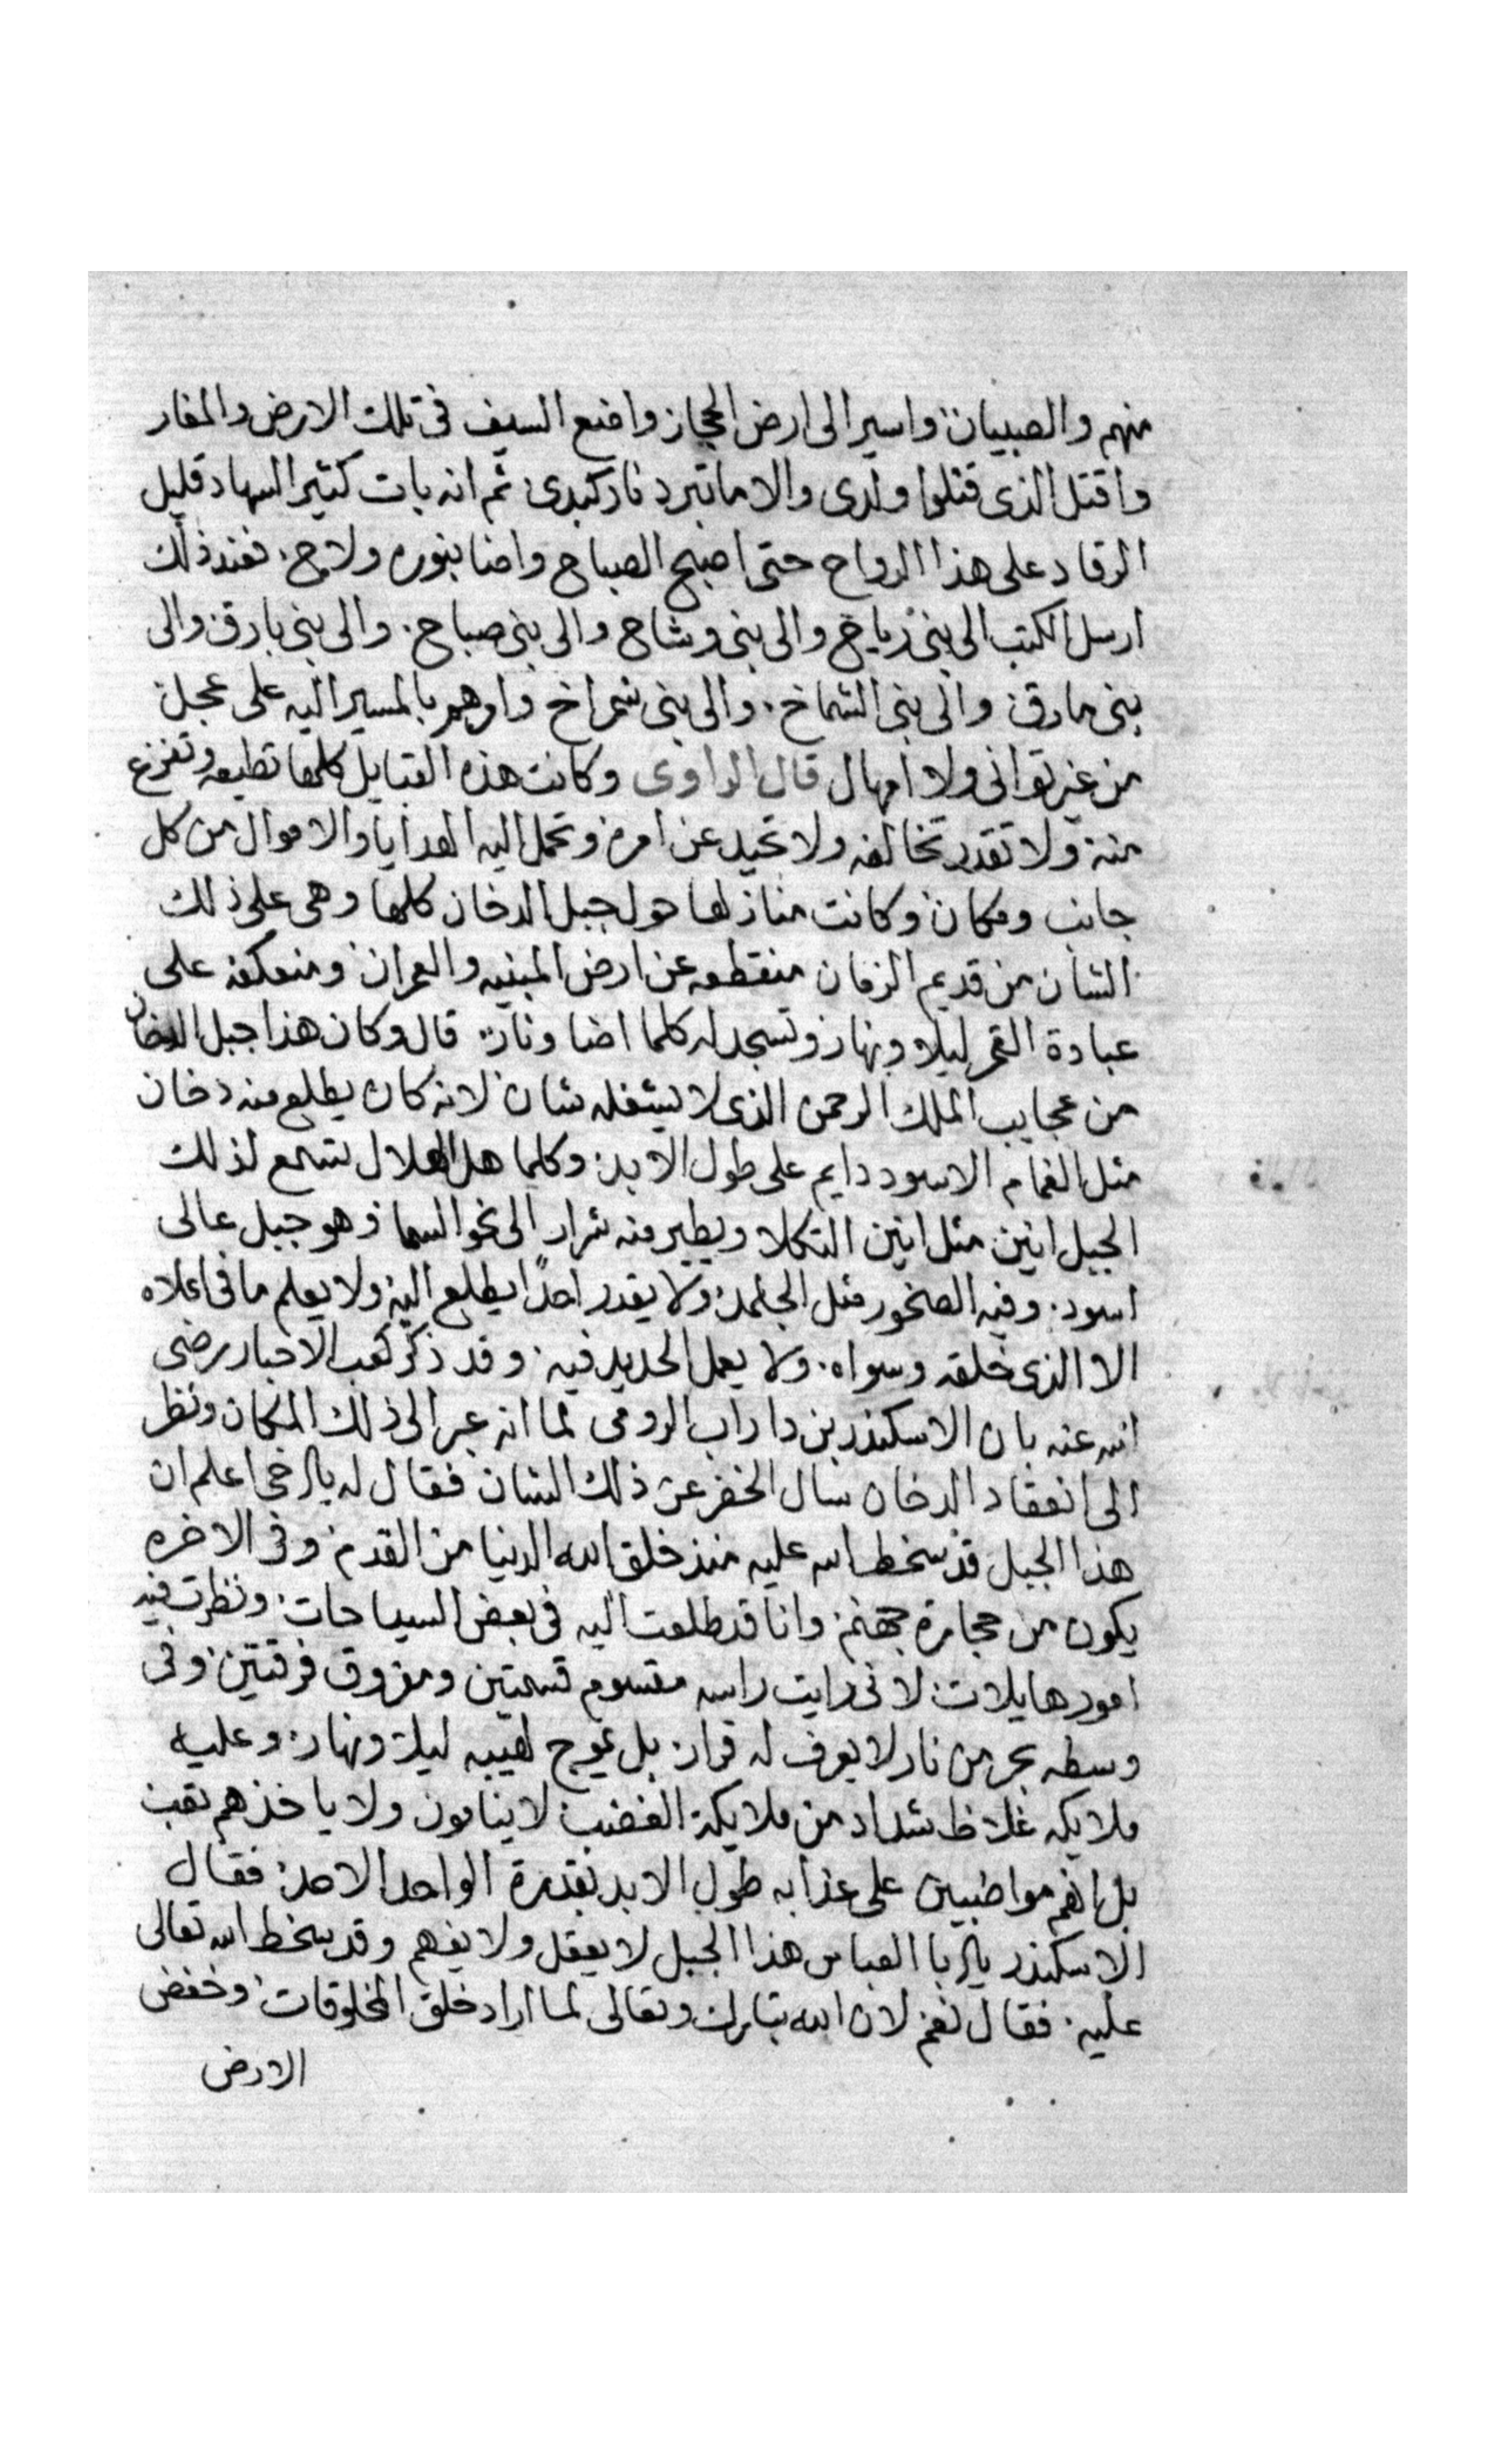 منهم والصبيان واسير الى ارض الحجاز واضع السيف فى تلك الارض والمغار
واقتل الذى قتلوا ولدى والا ما تبرد نار كبدى ثم انه بات كثير السهاد قليل
الرقاد على هذا الرواح حتى اصبح الصباح واضا بنوره ولاح فعند ذلك
ارسل الكتب الى بنى رياح والى بنى وشاح والى بنى صباح والى بنى بارق والى
بنى مارق والى بنى الشماخ والى بنى شمراخ وامرهم بالمسير اليه على عجل
من غير توانى ولا امهال قال الراوى وكانت هذه القبايل كلها تطيعه وتفزع
منه ولا تقدر تخالفه ولا تحيد عن امره وتحمل اليه الهدايا والاموال من كل
جانب ومكان وكانت منازلها حول جبل الدخان كلها وهى على ذلك
الشان من قديم الزمان منقطعه عن ارض المبنيه والعمران ومنعكفه على
عبادة القمر ليلا ونهار وتسجد له كلما اضا ونار قال وكان هذا جبل الدخان
من عجايب الملك الرحمن الذى لا يشغله شان لانه كان يطلع منه دخان
مثل الغمام الاسود دايم على طول الابد وكلما هل الهلال تسمع لذلك
الجبل انين مثل انين التكلا ويطير منه شرار الى نحو السما وهو جبل عالى
اسود وفيه الصخور مثل الجلمد ولا يقدر احدًا يطلع اليه ولا يعلم ما فى اعلاه
الا الذى خلقه وسواه ولا يعمل الحديد فيه وقد ذكر كعب الاحبار رضى
الله عنه بان الاسكندر بن داراب الرومى لما انه عبر الى ذلك المكان ونظر
الى انعقاد الدخان سال الخضر عن ذلك الشان فقال له يا اخى اعلم ان
هذا الجبل قد سخط الله عليه منذ خلق الله الدنيا من القدم وفى الاخره
يكون من حجارة جهنم وانا قد طلعت اليه فى بعض السياحات ونظرت فيه
امور هايلات لانى رايت راسه مقسوم قسمتين ومفروق فرقتين وفى
وسطه بحر من نار لا يعرف له قرار بل يموج لهيبه ليلا ونهار وعليه
ملايكه غلاظ شداد من ملايكة الغضب لا ينامون ولا ياخذهم تعب
بل انهم مواضبين على عذابه طول الابد بقدرة الواحد الاحد فقال
الاسكندر يا ابا العباس هذا الجبل لا يعقل ولا يفهم وقد سخط الله تعالى
عليه فقال نعم لان الله تبارك وتعالى لما اراد خلق المخلوقات وخفض
الارض